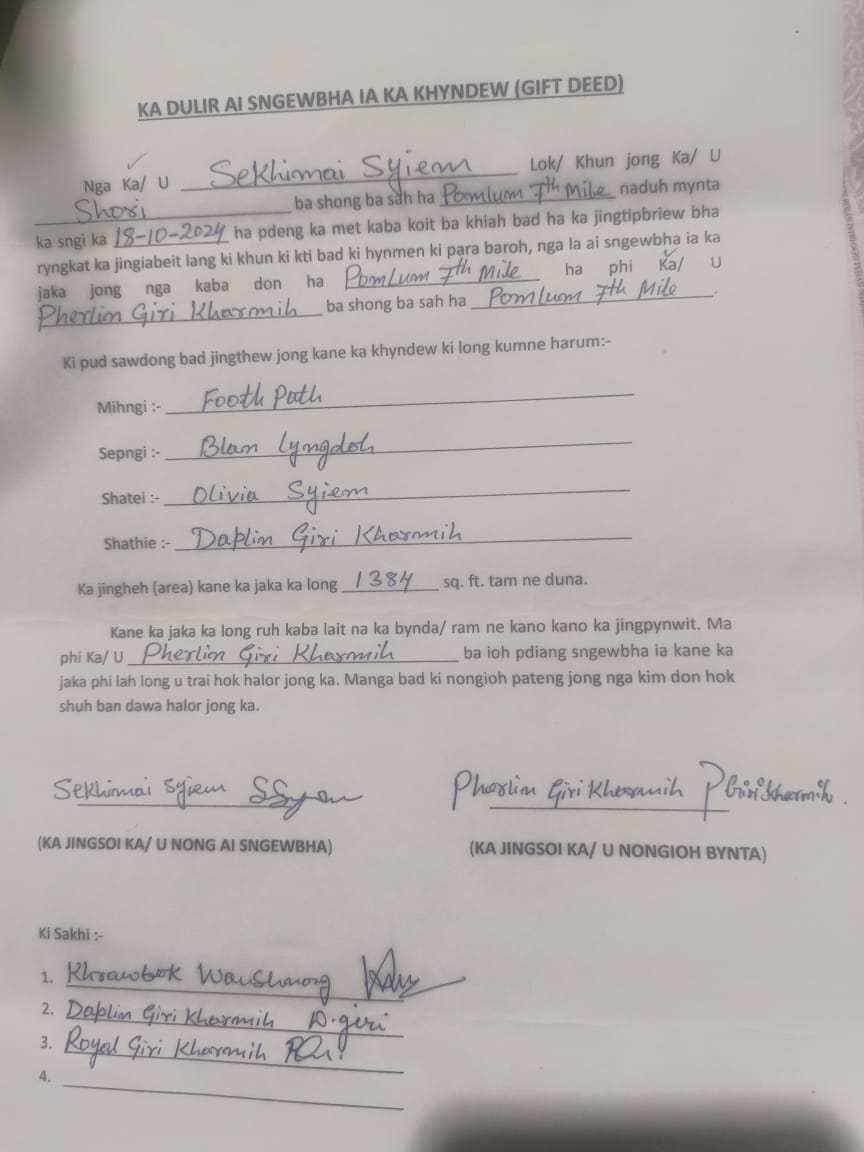 KA DULIR AI SNGEWBHA IA KA KHYNDEW (GIFT DEED)
Nga Ka/ U Sekhimai Syiem Lok/ Khun jong Ka/ U
Shori ba shong ba sah ha Pomlum 7th Mile naduh mynta
ka sngi ka 18-10-2024 ha pdeng ka met kaba koit ba khiah bad ha ka jingtipbriew bha
ryngkat ka jingiabeit lang ki khun ki kti bad ki hynmen ki para baroh, nga la ai sngewbha ia ka
jaka jong nga kaba don ha Pomlum 7th Mile ha phi Ka/ U
Pherlin Giri Kharmih ba shong ba sah ha Pomlum 7th Mile.
Ki pud sawdong bad jingthew jong kane ka khyndew ki long kumne harum:-
Mihngi :- Footh Path
Sepngi :- Blan Lyngdoh
Shatei :- Olivia Syiem
Shathie :- Daplin Giri Kharmih
Ka jingheh (area) kane ka jaka ka long 1384 sq. ft. tam ne duna.
Kane ka jaka ka long ruh kaba lait na ka bynda/ ram ne kano kano ka jingpynwit. Ma
phi Ka/ U Pherlin Giri Kharmih ba ioh pdiang sngewbha ia kane ka
jaka phi lah long u trai hok halor jong ka. Manga bad ki nongioh pateng jong nga kim don hok
shuh ban dawa halor jong ka.
Sekhimai Syiem Pherlin Giri Kharmih
(KA JINGSOI KA/ U NONG AI SNGEWBHA) (KA JINGSOI KA/ U NONGIOH BYNTA)
Ki Sakhi :-
1. Khrawbok Wanshnong
2. Daplin Giri Kharmih D.giri
3. Royal Giri Kharmih
4.